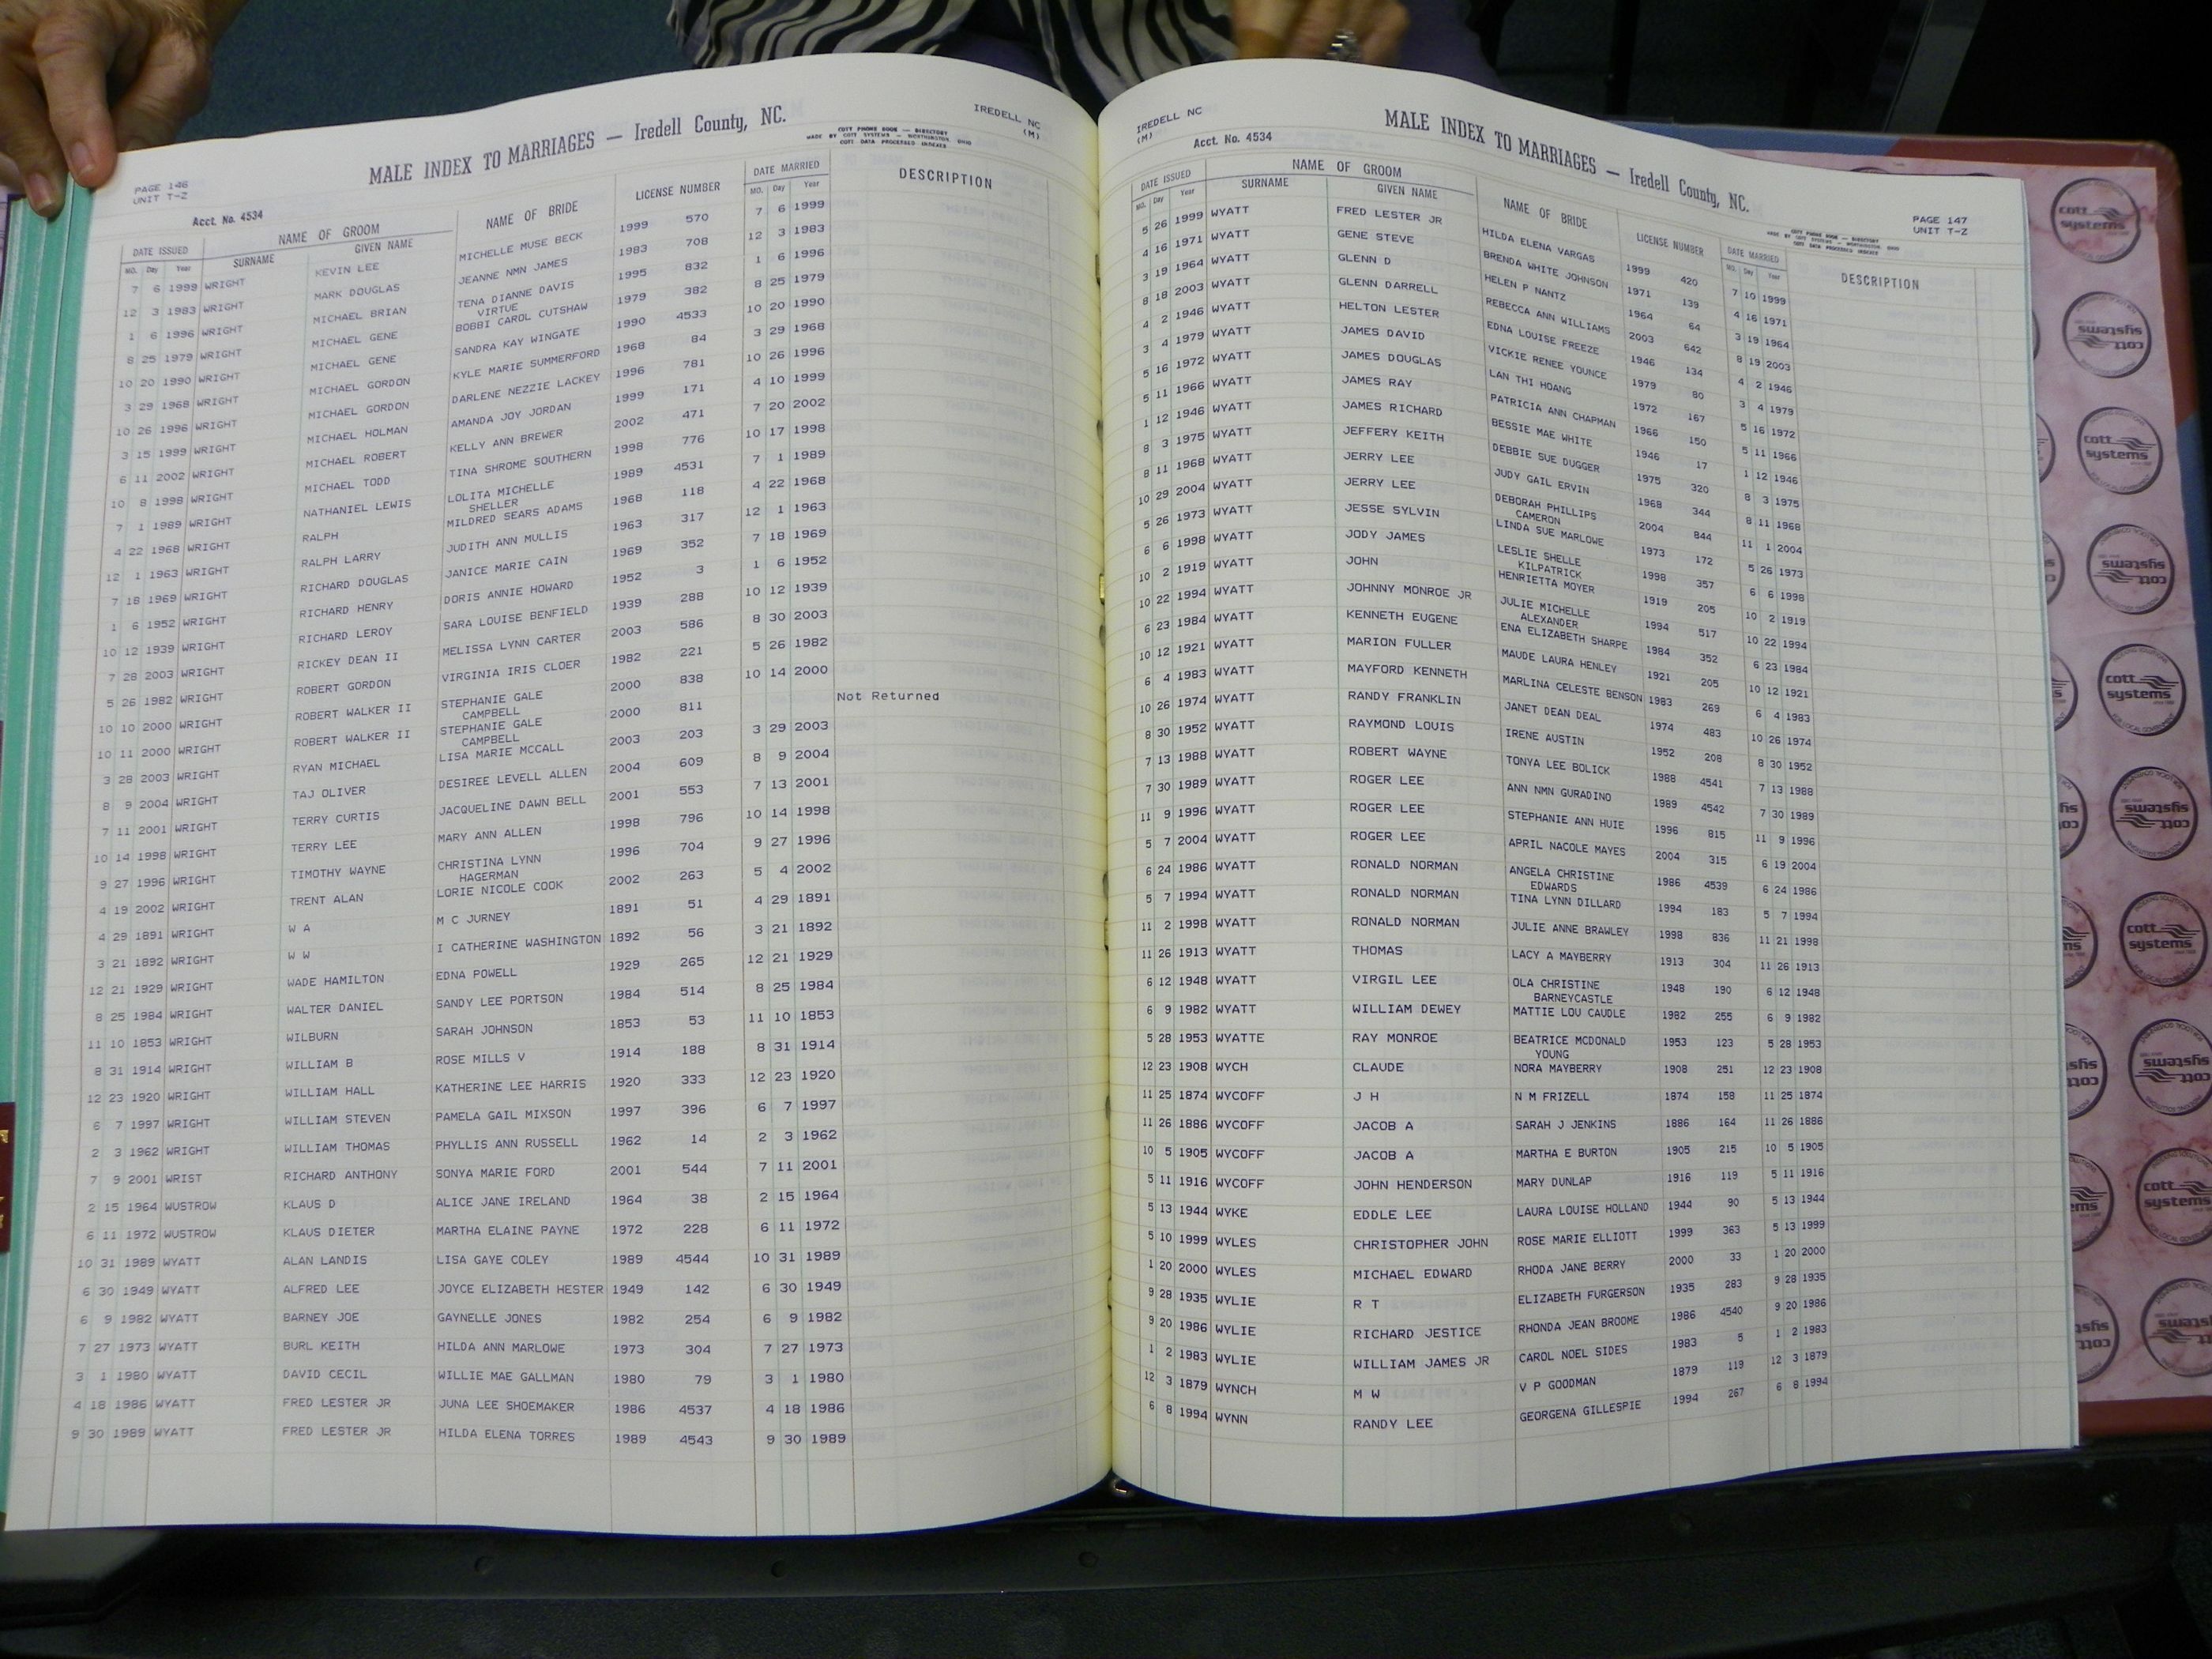 IREDELL NC
(M)
MALE INDEX TO MARRIAGES — Iredell County, NC.
COTT PHONE BOOK — DIRECTORY
MADE BY COTT SYSTEMS — WORTHINGTON OHIO
COTT DATA PROCESSED INDEXES
PAGE 146
UNIT T-Z
Acct. No. 4534
DATE ISSUED NAME OF GROOM NAME OF BRIDE LICENSE NUMBER DATE MARRIED DESCRIPTION
MO. Day Year SURNAME GIVEN NAME MO. Day Year
7 6 1999 WRIGHT KEVIN LEE MICHELLE MUSE BECK 1999 570 7 6 1999
12 3 1983 WRIGHT MARK DOUGLAS JEANNE NMN JAMES 1983 708 12 3 1983
1 6 1996 WRIGHT MICHAEL BRIAN TENA DIANNE DAVIS 1995 832 1 6 1996
VIRTUE
8 25 1979 WRIGHT MICHAEL GENE BOBBI CAROL CUTSHAW 1979 382 8 25 1979
10 20 1990 WRIGHT MICHAEL GENE SANDRA KAY WINGATE 1990 4533 10 20 1990
3 29 1968 WRIGHT MICHAEL GORDON KYLE MARIE SUMMERFORD 1968 84 3 29 1968
10 26 1996 WRIGHT MICHAEL GORDON DARLENE NEZZIE LACKEY 1996 781 10 26 1996
3 15 1999 WRIGHT MICHAEL HOLMAN AMANDA JOY JORDAN 1999 171 4 10 1999
6 11 2002 WRIGHT MICHAEL ROBERT KELLY ANN BREWER 2002 471 7 20 2002
10 8 1998 WRIGHT MICHAEL TODD TINA SHROME SOUTHERN 1998 776 10 17 1998
7 1 1989 WRIGHT NATHANIEL LEWIS LOLITA MICHELLE 1989 4531 7 1 1989
SHELLER
4 22 1968 WRIGHT RALPH MILDRED SEARS ADAMS 1968 118 4 22 1968
12 1 1963 WRIGHT RALPH LARRY JUDITH ANN MULLIS 1963 317 12 1 1963
7 18 1969 WRIGHT RICHARD DOUGLAS JANICE MARIE CAIN 1969 352 7 18 1969
1 6 1952 WRIGHT RICHARD HENRY DORIS ANNIE HOWARD 1952 3 1 6 1952
10 12 1939 WRIGHT RICHARD LEROY SARA LOUISE BENFIELD 1939 288 10 12 1939
7 28 2003 WRIGHT RICKEY DEAN II MELISSA LYNN CARTER 2003 586 8 30 2003
5 26 1982 WRIGHT ROBERT GORDON VIRGINIA IRIS CLOER 1982 221 5 26 1982
10 10 2000 WRIGHT ROBERT WALKER II STEPHANIE GALE 2000 838 10 14 2000
CAMPBELL
10 11 2000 WRIGHT ROBERT WALKER II STEPHANIE GALE 2000 811 Not Returned
CAMPBELL
3 28 2003 WRIGHT RYAN MICHAEL LISA MARIE MCCALL 2003 203 3 29 2003
8 9 2004 WRIGHT TAJ OLIVER DESIREE LEVELL ALLEN 2004 609 8 9 2004
7 11 2001 WRIGHT TERRY CURTIS JACQUELINE DAWN BELL 2001 553 7 13 2001
10 14 1998 WRIGHT TERRY LEE MARY ANN ALLEN 1998 796 10 14 1998
9 27 1996 WRIGHT TIMOTHY WAYNE CHRISTINA LYNN 1996 704 9 27 1996
HAGERMAN
4 19 2002 WRIGHT TRENT ALAN LORIE NICOLE COOK 2002 263 5 4 2002
4 29 1891 WRIGHT W A M C JURNEY 1891 51 4 29 1891
3 21 1892 WRIGHT W W I CATHERINE WASHINGTON 1892 56 3 21 1892
12 21 1929 WRIGHT WADE HAMILTON EDNA POWELL 1929 265 12 21 1929
8 25 1984 WRIGHT WALTER DANIEL SANDY LEE PORTSON 1984 514 8 25 1984
11 10 1853 WRIGHT WILBURN SARAH JOHNSON 1853 53 11 10 1853
8 31 1914 WRIGHT WILLIAM B ROSE MILLS V 1914 188 8 31 1914
12 23 1920 WRIGHT WILLIAM HALL KATHERINE LEE HARRIS 1920 333 12 23 1920
6 7 1997 WRIGHT WILLIAM STEVEN PAMELA GAIL MIXSON 1997 396 6 7 1997
2 3 1962 WRIGHT WILLIAM THOMAS PHYLLIS ANN RUSSELL 1962 14 2 3 1962
7 9 2001 WRIST RICHARD ANTHONY SONYA MARIE FORD 2001 544 7 11 2001
2 15 1964 WUSTROW KLAUS D ALICE JANE IRELAND 1964 38 2 15 1964
6 11 1972 WUSTROW KLAUS DIETER MARTHA ELAINE PAYNE 1972 228 6 11 1972
10 31 1989 WYATT ALAN LANDIS LISA GAYE COLEY 1989 4544 10 31 1989
6 30 1949 WYATT ALFRED LEE JOYCE ELIZABETH HESTER 1949 142 6 30 1949
6 9 1982 WYATT BARNEY JOE GAYNELLE JONES 1982 254 6 9 1982
7 27 1973 WYATT BURL KEITH HILDA ANN MARLOWE 1973 304 7 27 1973
3 1 1980 WYATT DAVID CECIL WILLIE MAE GALLMAN 1980 79 3 1 1980
4 18 1986 WYATT FRED LESTER JR JUNA LEE SHOEMAKER 1986 4537 4 18 1986
9 30 1989 WYATT FRED LESTER JR HILDA ELENA TORRES 1989 4543 9 30 1989
IREDELL NC
(M)
MALE INDEX TO MARRIAGES — Iredell County, NC.
Acct. No. 4534
COTT PHONE BOOK — DIRECTORY
MADE BY COTT SYSTEMS — WORTHINGTON OHIO
COTT DATA PROCESSED INDEXES
PAGE 147
UNIT T-Z
DATE ISSUED NAME OF GROOM NAME OF BRIDE LICENSE NUMBER DATE MARRIED DESCRIPTION
MO. Day Year SURNAME GIVEN NAME MO. Day Year
5 26 1999 WYATT FRED LESTER JR HILDA ELENA VARGAS 1999 420 7 10 1999
4 16 1971 WYATT GENE STEVE BRENDA WHITE JOHNSON 1971 139 4 16 1971
3 19 1964 WYATT GLENN D HELEN P NANTZ 1964 64 3 19 1964
8 18 2003 WYATT GLENN DARRELL REBECCA ANN WILLIAMS 2003 642 8 19 2003
4 2 1946 WYATT HELTON LESTER EDNA LOUISE FREEZE 1946 134 4 2 1946
3 4 1979 WYATT JAMES DAVID VICKIE RENEE YOUNCE 1979 80 3 4 1979
5 16 1972 WYATT JAMES DOUGLAS LAN THI HOANG 1972 167 5 16 1972
5 11 1966 WYATT JAMES RAY PATRICIA ANN CHAPMAN 1966 150 5 11 1966
1 12 1946 WYATT JAMES RICHARD BESSIE MAE WHITE 1946 17 1 12 1946
8 3 1975 WYATT JEFFERY KEITH DEBBIE SUE DUGGER 1975 320 8 3 1975
8 11 1968 WYATT JERRY LEE JUDY GAIL ERVIN 1968 344 8 11 1968
10 29 2004 WYATT JERRY LEE DEBORAH PHILLIPS 2004 844 11 1 2004
CAMERON
5 26 1973 WYATT JESSE SYLVIN LINDA SUE MARLOWE 1973 172 5 26 1973
6 6 1998 WYATT JODY JAMES LESLIE SHELLE 1998 357 6 6 1998
KILPATRICK
10 2 1919 WYATT JOHN HENRIETTA MOYER 1919 205 10 2 1919
10 22 1994 WYATT JOHNNY MONROE JR JULIE MICHELLE 1994 517 10 22 1994
ALEXANDER
6 23 1984 WYATT KENNETH EUGENE ENA ELIZABETH SHARPE 1984 352 6 23 1984
10 12 1921 WYATT MARION FULLER MAUDE LAURA HENLEY 1921 205 10 12 1921
6 4 1983 WYATT MAYFORD KENNETH MARLINA CELESTE BENSON 1983 269 6 4 1983
10 26 1974 WYATT RANDY FRANKLIN JANET DEAN DEAL 1974 483 10 26 1974
8 30 1952 WYATT RAYMOND LOUIS IRENE AUSTIN 1952 208 8 30 1952
7 13 1988 WYATT ROBERT WAYNE TONYA LEE BOLICK 1988 4541 7 13 1988
7 30 1989 WYATT ROGER LEE ANN NMN GURADINO 1989 4542 7 30 1989
11 9 1996 WYATT ROGER LEE STEPHANIE ANN HUIE 1996 815 11 9 1996
5 7 2004 WYATT ROGER LEE APRIL NACOLE MAYES 2004 315 6 19 2004
6 24 1986 WYATT RONALD NORMAN ANGELA CHRISTINE 1986 4539 6 24 1986
EDWARDS
5 7 1994 WYATT RONALD NORMAN TINA LYNN DILLARD 1994 183 5 7 1994
11 2 1998 WYATT RONALD NORMAN JULIE ANNE BRAWLEY 1998 836 11 21 1998
11 26 1913 WYATT THOMAS LACY A MAYBERRY 1913 304 11 26 1913
6 12 1948 WYATT VIRGIL LEE OLA CHRISTINE 1948 190 6 12 1948
BARNEYCASTLE
6 9 1982 WYATT WILLIAM DEWEY MATTIE LOU CAUDLE 1982 255 6 9 1982
5 28 1953 WYATTE RAY MONROE BEATRICE MCDONALD 1953 123 5 28 1953
YOUNG
12 23 1908 WYCH CLAUDE NORA MAYBERRY 1908 251 12 23 1908
11 25 1874 WYCOFF J H N M FRIZELL 1874 158 11 25 1874
11 26 1886 WYCOFF JACOB A SARAH J JENKINS 1886 164 11 26 1886
10 5 1905 WYCOFF JACOB A MARTHA E BURTON 1905 215 10 5 1905
5 11 1916 WYCOFF JOHN HENDERSON MARY DUNLAP 1916 119 5 11 1916
5 13 1944 WYKE EDDLE LEE LAURA LOUISE HOLLAND 1944 90 5 13 1944
5 10 1999 WYLES CHRISTOPHER JOHN ROSE MARIE ELLIOTT 1999 363 5 13 1999
1 20 2000 WYLES MICHAEL EDWARD RHODA JANE BERRY 2000 33 1 20 2000
9 28 1935 WYLIE R T ELIZABETH FURGERSON 1935 283 9 28 1935
9 20 1986 WYLIE RICHARD JESTICE RHONDA JEAN BROOME 1986 4540 9 20 1986
1 2 1983 WYLIE WILLIAM JAMES JR CAROL NOEL SIDES 1983 5 1 2 1983
12 3 1879 WYNCH M W V P GOODMAN 1879 119 12 3 1879
6 8 1994 WYNN RANDY LEE GEORGENA GILLESPIE 1994 267 6 8 1994
cott systems
cott systems
cott systems
cott systems
cott systems
cott systems